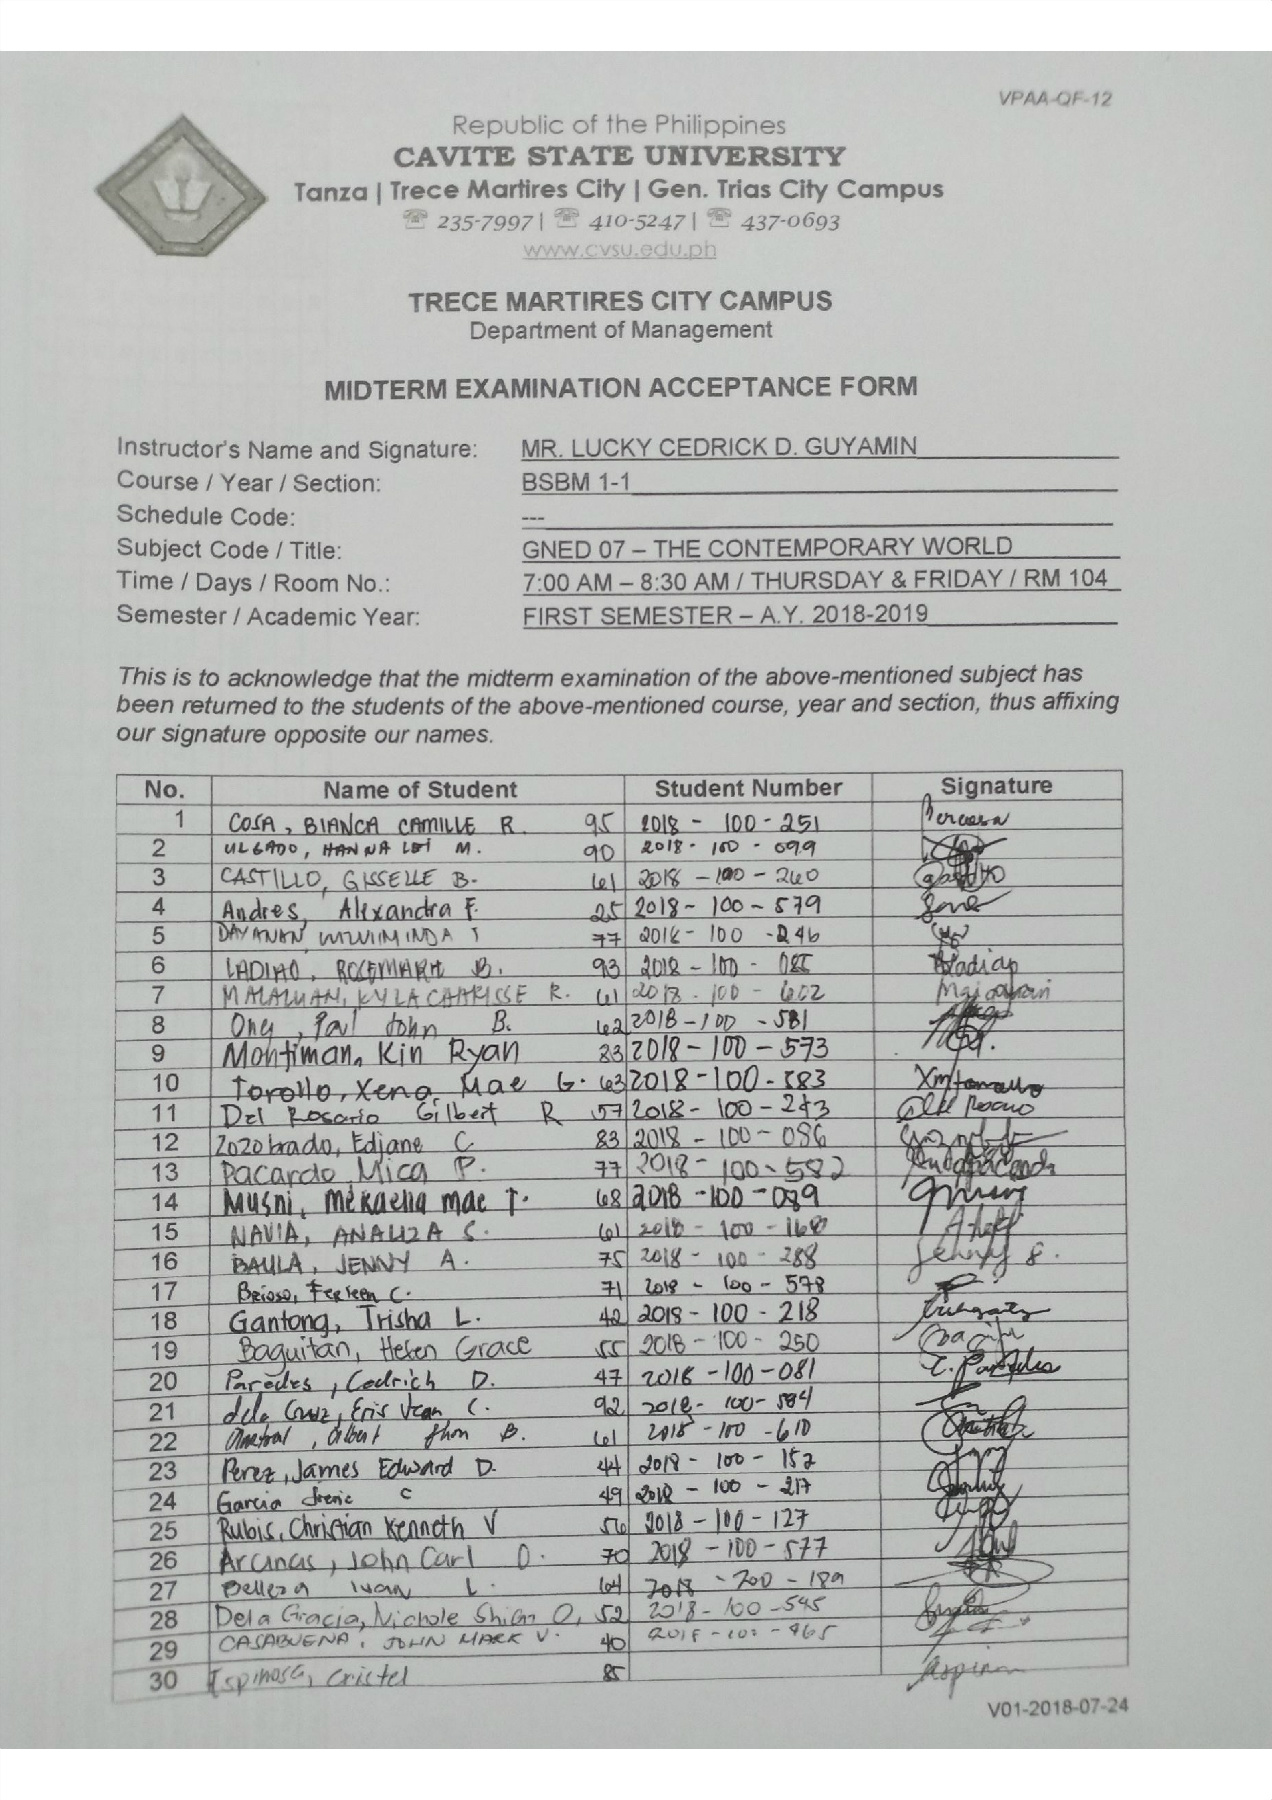 VPAA-QF-12
Republic of the Philippines
CAVITE STATE UNIVERSITY
Tanza | Trece Martires City | Gen. Trias City Campus
☏ 235-7997 | ☏ 410-5247 | ☏ 437-0693
www.cvsu.edu.ph
TRECE MARTIRES CITY CAMPUS
Department of Management
MIDTERM EXAMINATION ACCEPTANCE FORM
Instructor's Name and Signature: MR. LUCKY CEDRICK D. GUYAMIN
Course / Year / Section: BSBM 1-1
Schedule Code: ---
Subject Code / Title: GNED 07 – THE CONTEMPORARY WORLD
Time / Days / Room No.: 7:00 AM – 8:30 AM / THURSDAY & FRIDAY / RM 104
Semester / Academic Year: FIRST SEMESTER – A.Y. 2018-2019
This is to acknowledge that the midterm examination of the above-mentioned subject has
been returned to the students of the above-mentioned course, year and section, thus affixing
our signature opposite our names.
No. Name of Student Student Number Signature
1 COSA, BIANCA CAMILLE R. 95 2018 - 100 - 251
2 ULGADO, HANNA LEI M. 90 2018 - 100 - 099
3 CASTILLO, GISSELLE B. 61 2018 - 100 - 260
4 Andres, Alexandra F. 25 2018 - 100 - 579
5 DAYANAN 77 2018 - 100 - 246
6 LADIAO, ROSEMARIE B. 93 2018 - 100 - 085 Aladiao
7 MALALUAN, KYLA CHARISSE R. 61 2018 - 100 - 602
8 Ong, Paul John B. 62 2018 - 100 - 581
9 Montiman, Kin Ryan 83 2018 - 100 - 573
10 Torollo, Xena Mae G. 63 2018 - 100 - 583
11 Del Rosario Gilbert R 57 2018 - 100 - 243
12 Zozobrado, Edjane C. 83 2018 - 100 - 086
13 Pacardo Mica P. 77 2018 - 100 - 582
14 Musni, Mekaella Mae T. 68 2018 - 100 - 089
15 NAVIA, ANALIZA S. 61 2018 - 100 - 168
16 BAULA, JENNY A. 75 2018 - 100 - 288
17 Brioso, Ferleen C. 71 2018 - 100 - 578
18 Gantong, Trisha L. 42 2018 - 100 - 218
19 Baguitan, Helen Grace 55 2018 - 100 - 250
20 Paredes, Cedrich D. 47 2018 - 100 - 081
21 dela Cruz, Eris Jean C. 92 2018 - 100 - 584
22 Albert Jhon B. 61 2018 - 100 - 610
23 Perez, James Edward D. 44 2018 - 100 - 152
24 Garcia C 49 2018 - 100 - 217
25 Rubis, Christian Kenneth V 56 2018 - 100 - 127
26 Arcinas, John Carl D. 70 2018 - 100 - 577
27 Belleza Ivan L. 64 2018 - 200 - 189
28 Dela Gracia, Nichole Shian O. 52 2018 - 100 - 545
29 CASABUENA, JOHN MARK V. 40 2018 - 101 - 465
30 Espinosa, Cristel 85
V01-2018-07-24